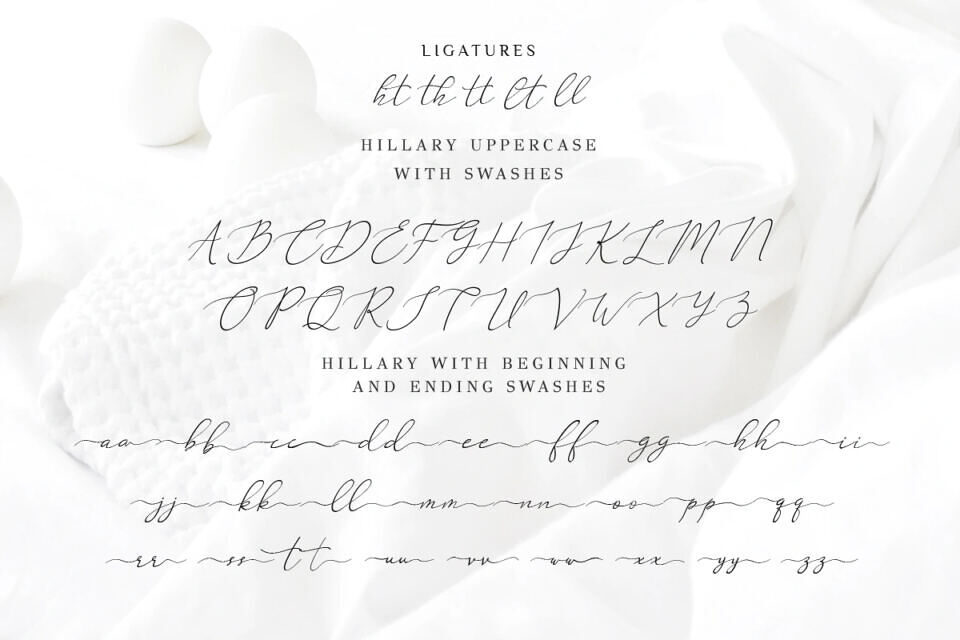 LIGATURES
ht th tt lt ll
HILLARY UPPERCASE
WITH SWASHES
ABCDEFGHIJKLMN
OPQRSTUVWXYZ
HILLARY WITH BEGINNING
AND ENDING SWASHES
aa bb cc dd ee ff gg hh ii
jj kk ll mm nn oo pp qq
rr ss tt uu vv ww xx yy zz